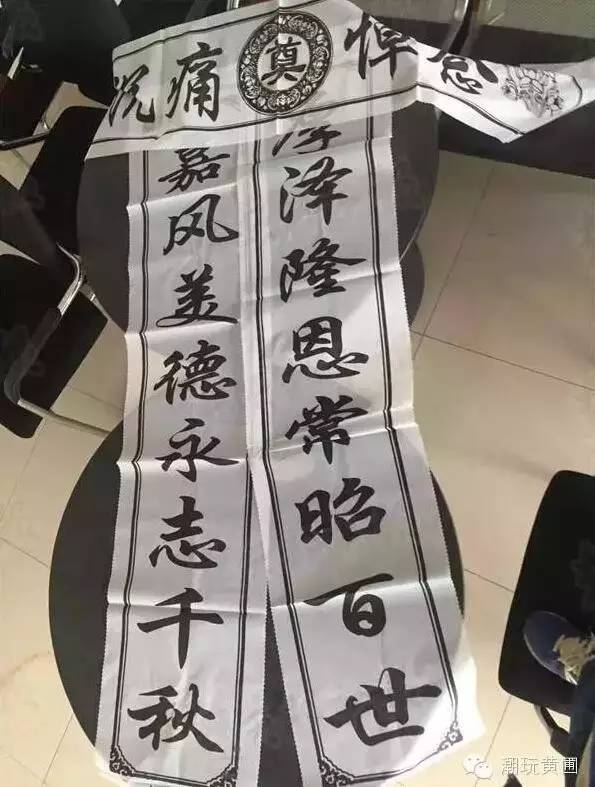 沉痛 奠 悼念
厚泽隆恩常昭百世
嘉风美德永志千秋
潮玩黄圃